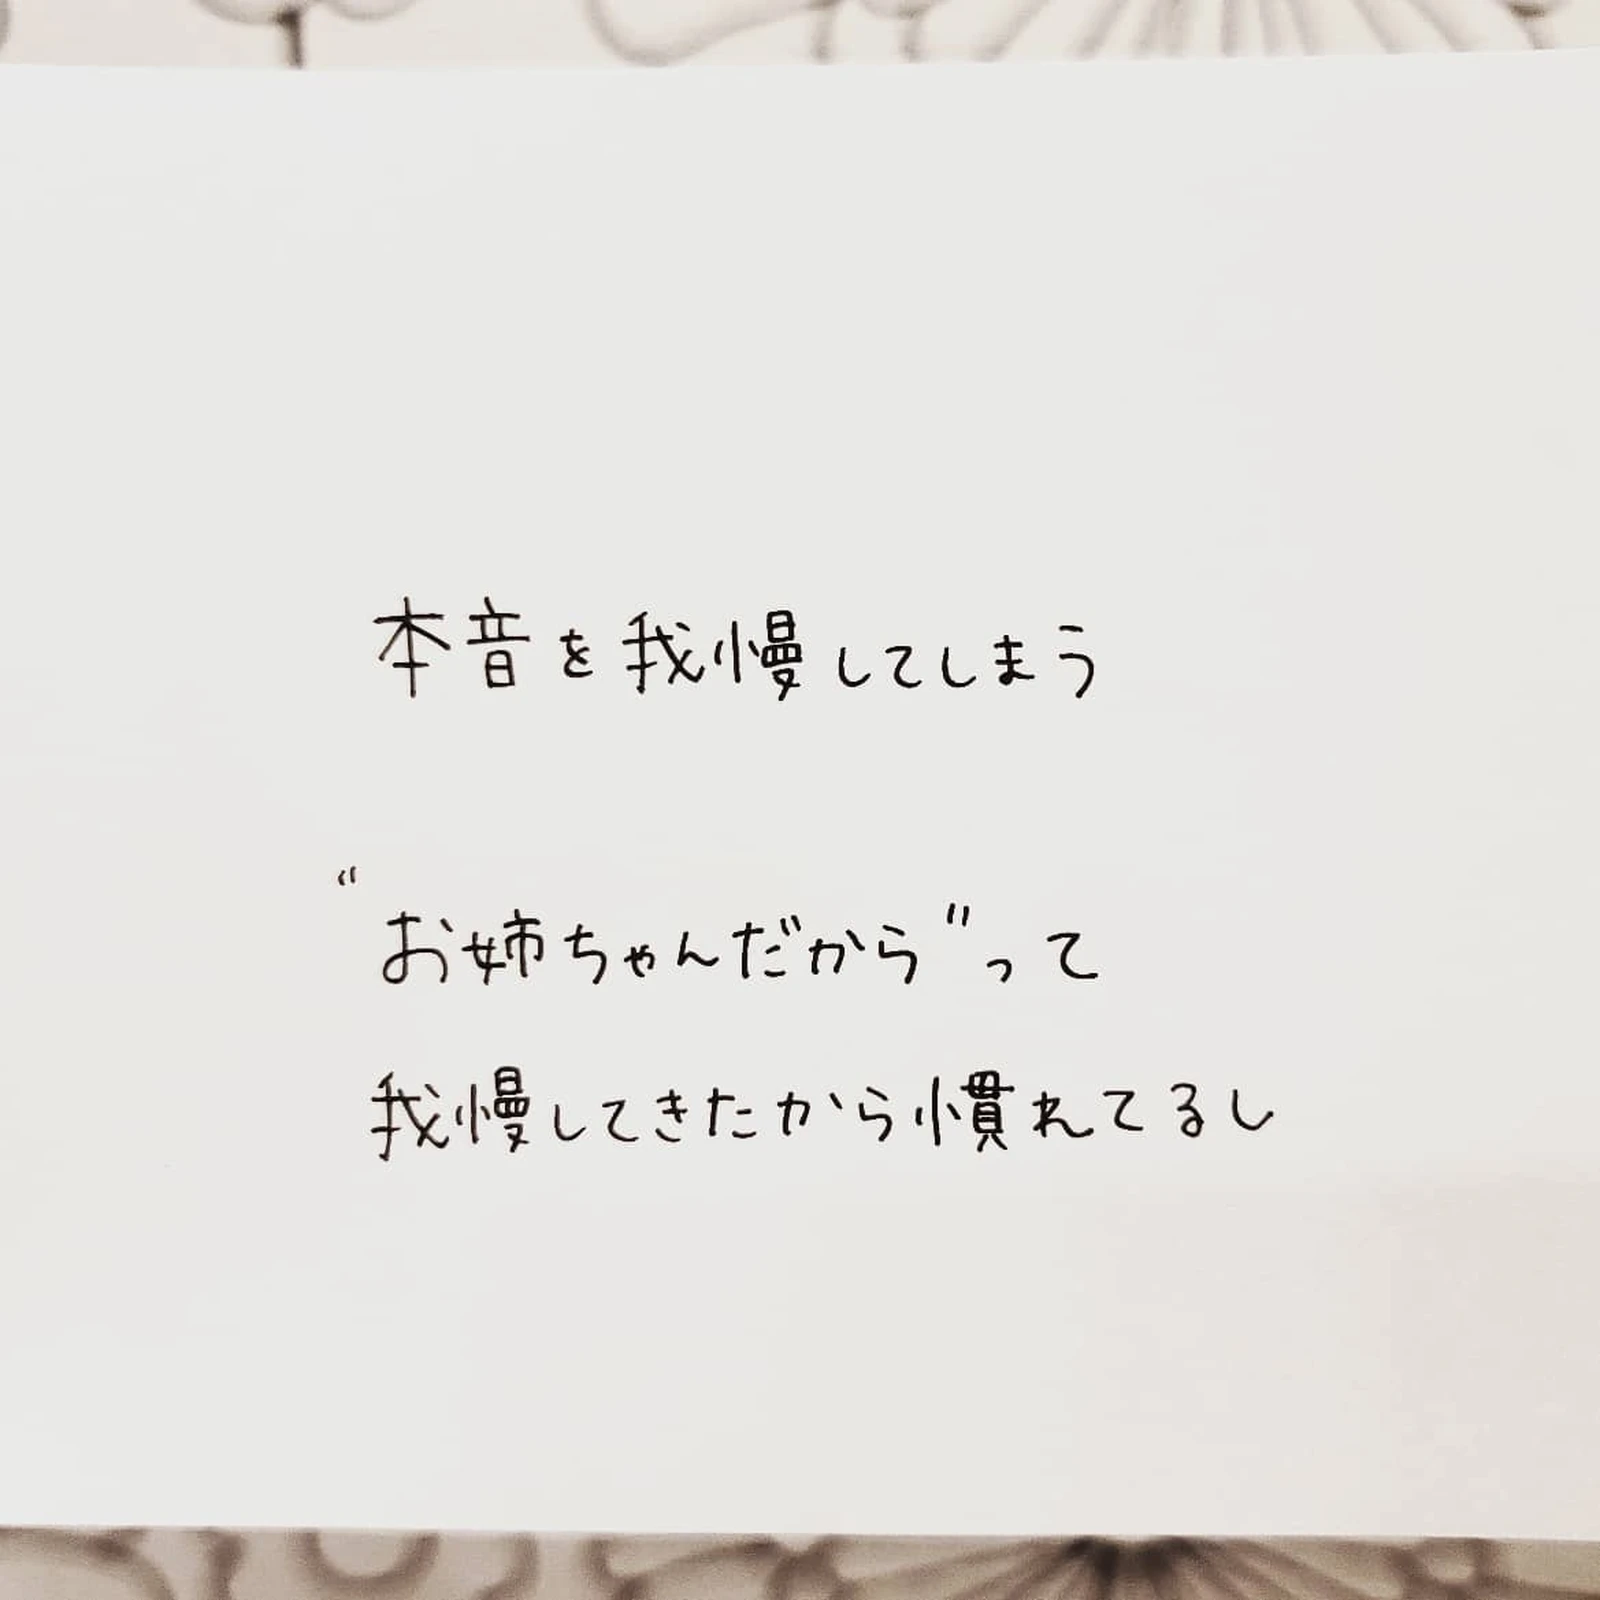 本音を我慢してしまう
“お姉ちゃんだから”って
我慢してきたから慣れてるし